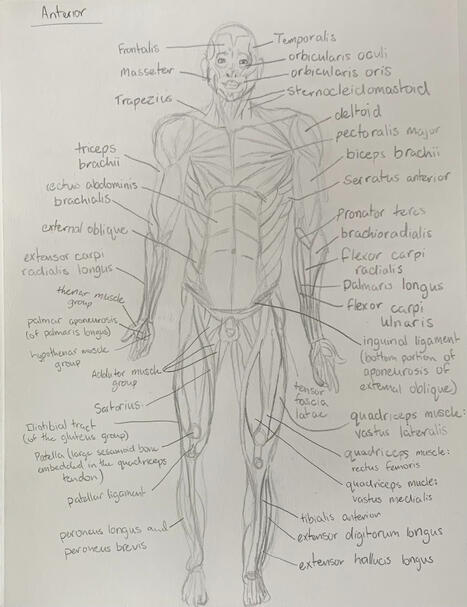 Anterior
Frontalis
Masseter
Trapezius
triceps
brachii
rectus abdominis
brachialis
external oblique
extensor carpi
radialis longus
thenar muscle
group
palmar aponeurosis
(of palmaris longus)
hypothenar muscle
group
Adductor muscle
group
Sartorius
Iliotibial tract
(of the gluteus group)
Patella (large sesamoid bone
embedded in the quadriceps
tendon)
patellar ligament
peroneus longus and
peroneus brevis
Temporalis
orbicularis oculi
orbicularis oris
sternocleidomastoid
deltoid
pectoralis major
biceps brachii
Serratus anterior
pronator teres
brachioradialis
flexor carpi
radialis
Palmaris longus
flexor carpi
ulnaris
inguinal ligament
(bottom portion of
aponeurosis of
external oblique)
tensor
fascia
latae
quadriceps muscle:
vastus lateralis
quadriceps muscle:
rectus femoris
quadriceps muscle:
vastus medialis
tibialis anterior
extensor digitorum longus
extensor hallucis longus